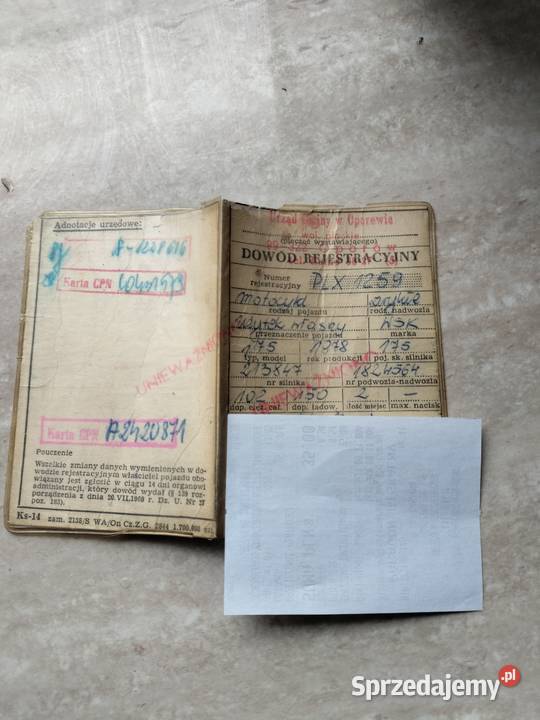 Adnotacje urzędowe:
Karta CPN
UNIEWAŻNIONO
Karta CPN A2420871
Pouczenie
Wszelkie zmiany danych wymienionych w do-
wodzie rejestracyjnym właściciel pojazdu obo-
wiązany jest zgłosić w ciągu 14 dni organowi
administracji, który dowód wydał (§ 139 roz-
porządzenia z dnia 20.VII.1968 r. Dz. U. Nr 27
poz. 183).
Ks-14 zam. 2138/S WA/On Cz.Z.G.
Urząd Gminy w Oporowie
woj. płockie
(pieczęć wystawiającego)
DOWÓD REJESTRACYJNY
Numer
rejestracyjny PLX 1259
motocykl
rodzaj pojazdu rodz. nadwozia
użytek własny WSK
przeznaczenie pojazdu marka
175 1978 175
typ, model rok produkcji poj. silnika
213847 1824564
nr silnika nr podwozia-nadwozia
102 150 2 —
dop. cięż. cał. dop. ładow. ilość miejsc max. nacisk
Sprzedajemy.pl